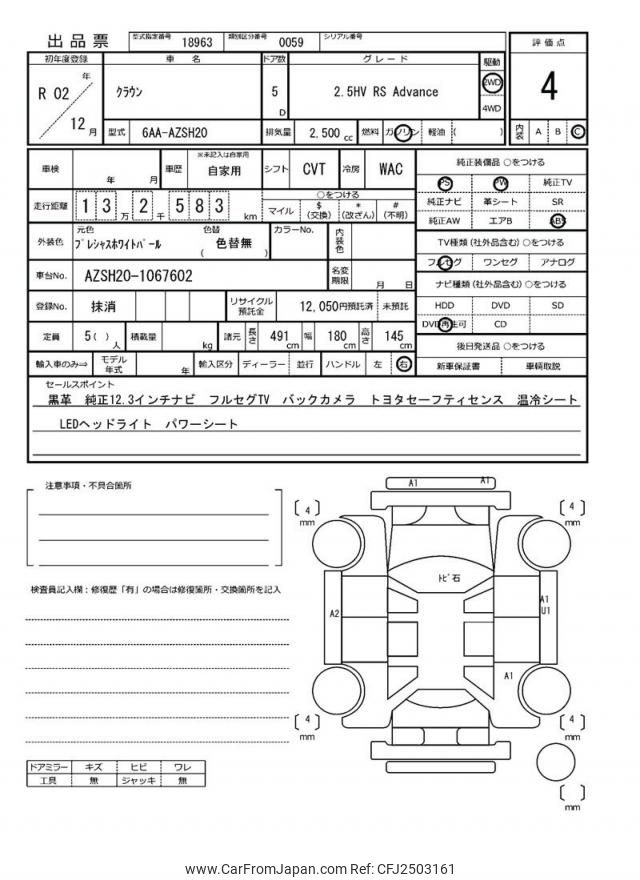 出品票 型式指定番号 18963 類別区分番号 0059 シリアル番号
初年度登録 車名 ドア数 グレード 駆動 評価点
R 02 年 12 月 クラウン 5 D 2.5HV RS Advance 2WD 4WD 4
型式 6AA-AZSH20 排気量 2,500 cc 燃料 ガソリン 軽油 ( ) 内装 A B C
車検 年 月 車歴 ※未記入は自家用 自家用 シフト CVT 冷房 WAC
純正装備品 ○をつける
PS PW 純正TV
純正ナビ 革シート SR
純正AW エアB ABS
走行距離 1 3 万 2 千 5 8 3 km
○をつける
マイル $ (交換) * (改ざん) # (不明)
外装色 元色 プレシャスホワイトパール 色替 色替無 ( ) カラーNo. 内装色
TV種類 (社外品含む) ○をつける
フルセグ ワンセグ アナログ
車台No. AZSH20-1067602 名変期限 月 日
ナビ種類 (社外品含む) ○をつける
HDD DVD SD
DVD再生可 CD
登録No. 抹消 リサイクル預託金 12,050円預託済 未預託
定員 5( ) 人 積載量 kg 諸元 長さ 491 cm 幅 180 cm 高さ 145 cm
後日発送品 ○をつける
新車保証書 車輌取説
輸入車のみ⇒ モデル年式 年 輸入区分 ディーラー 並行 ハンドル 左 右
セールスポイント
黒革 純正12.3インチナビ フルセグTV バックカメラ トヨタセーフティセンス 温冷シート
LEDヘッドライト パワーシート
注意事項・不具合箇所
検査員記入欄：修復歴「有」の場合は修復箇所・交換箇所を記入
A1 A1
4 mm
4 mm
トビ石
A2
A1
U1
A1
4 mm
4 mm
mm
ドアミラー キズ ヒビ ワレ
工具 無 ジャッキ 無
www.CarFromJapan.com Ref: CFJ2503161